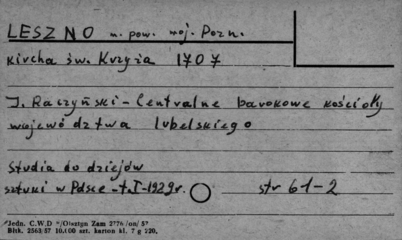 LESZNO m. pow. woj. Pozn.
kircha św. Krzyża 1707
J. Raczyński - Centralne barokowe kościoły
wojewó dztwa lubelskiego
Studia do dziejów
sztuki w Polsce - t. I - 1929 r. str 61-2
Jedn. C.W.D Olsztyn Zam
Bltk. 2563/57 10.000 szt. karton kl. 7 g 220,